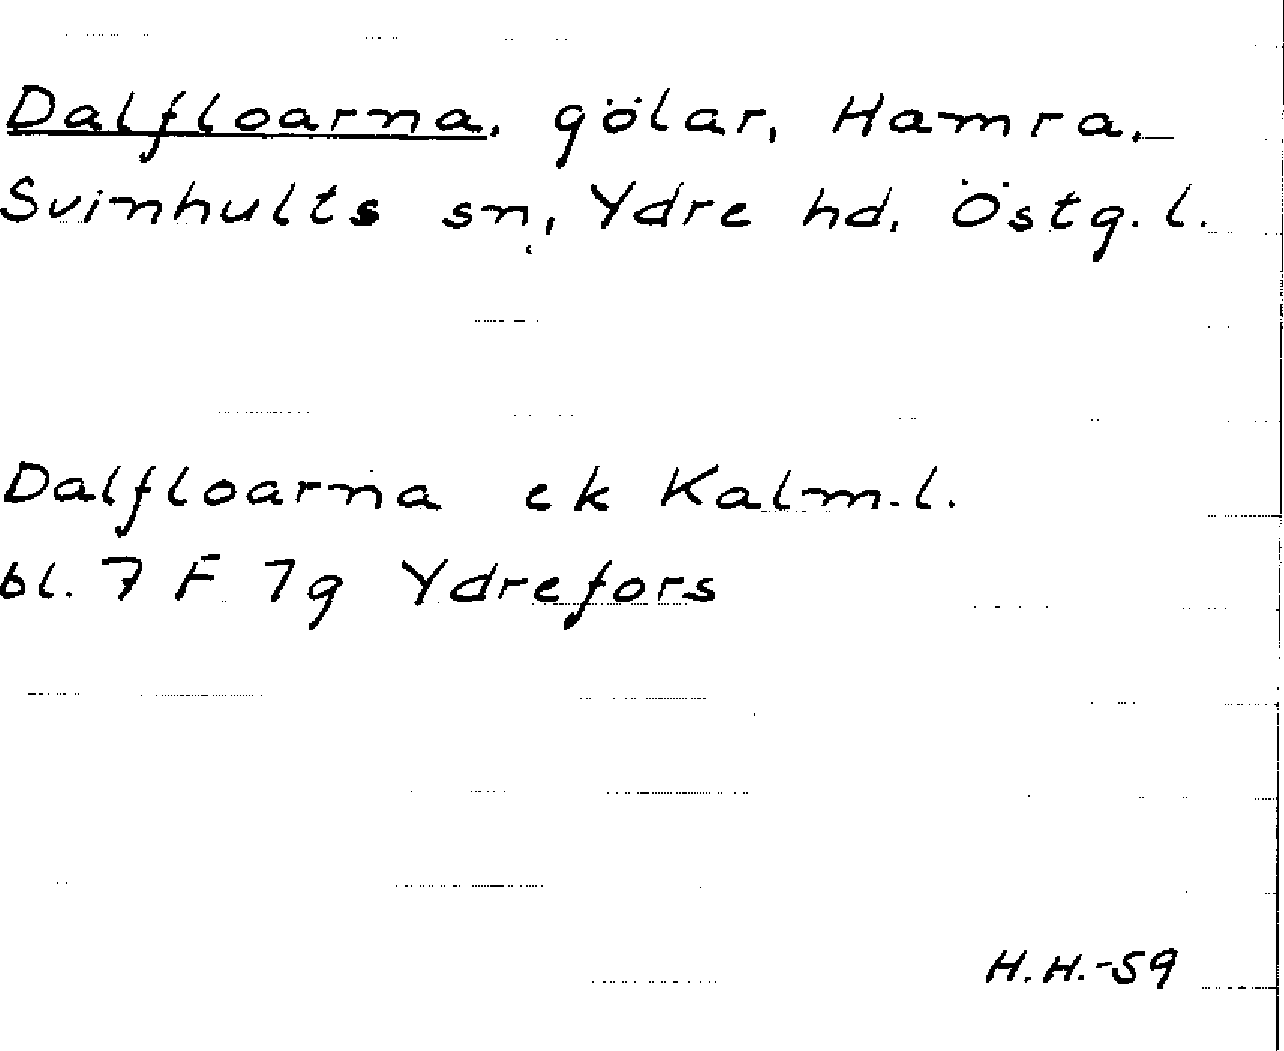 Dalfloarna, gölar, Hamra,
Svinhults sn, Ydre hd. Östg. l.
Dalfloarna ek Kalm. l.
bl. 7 F 7g Ydrefors
H.H.-59